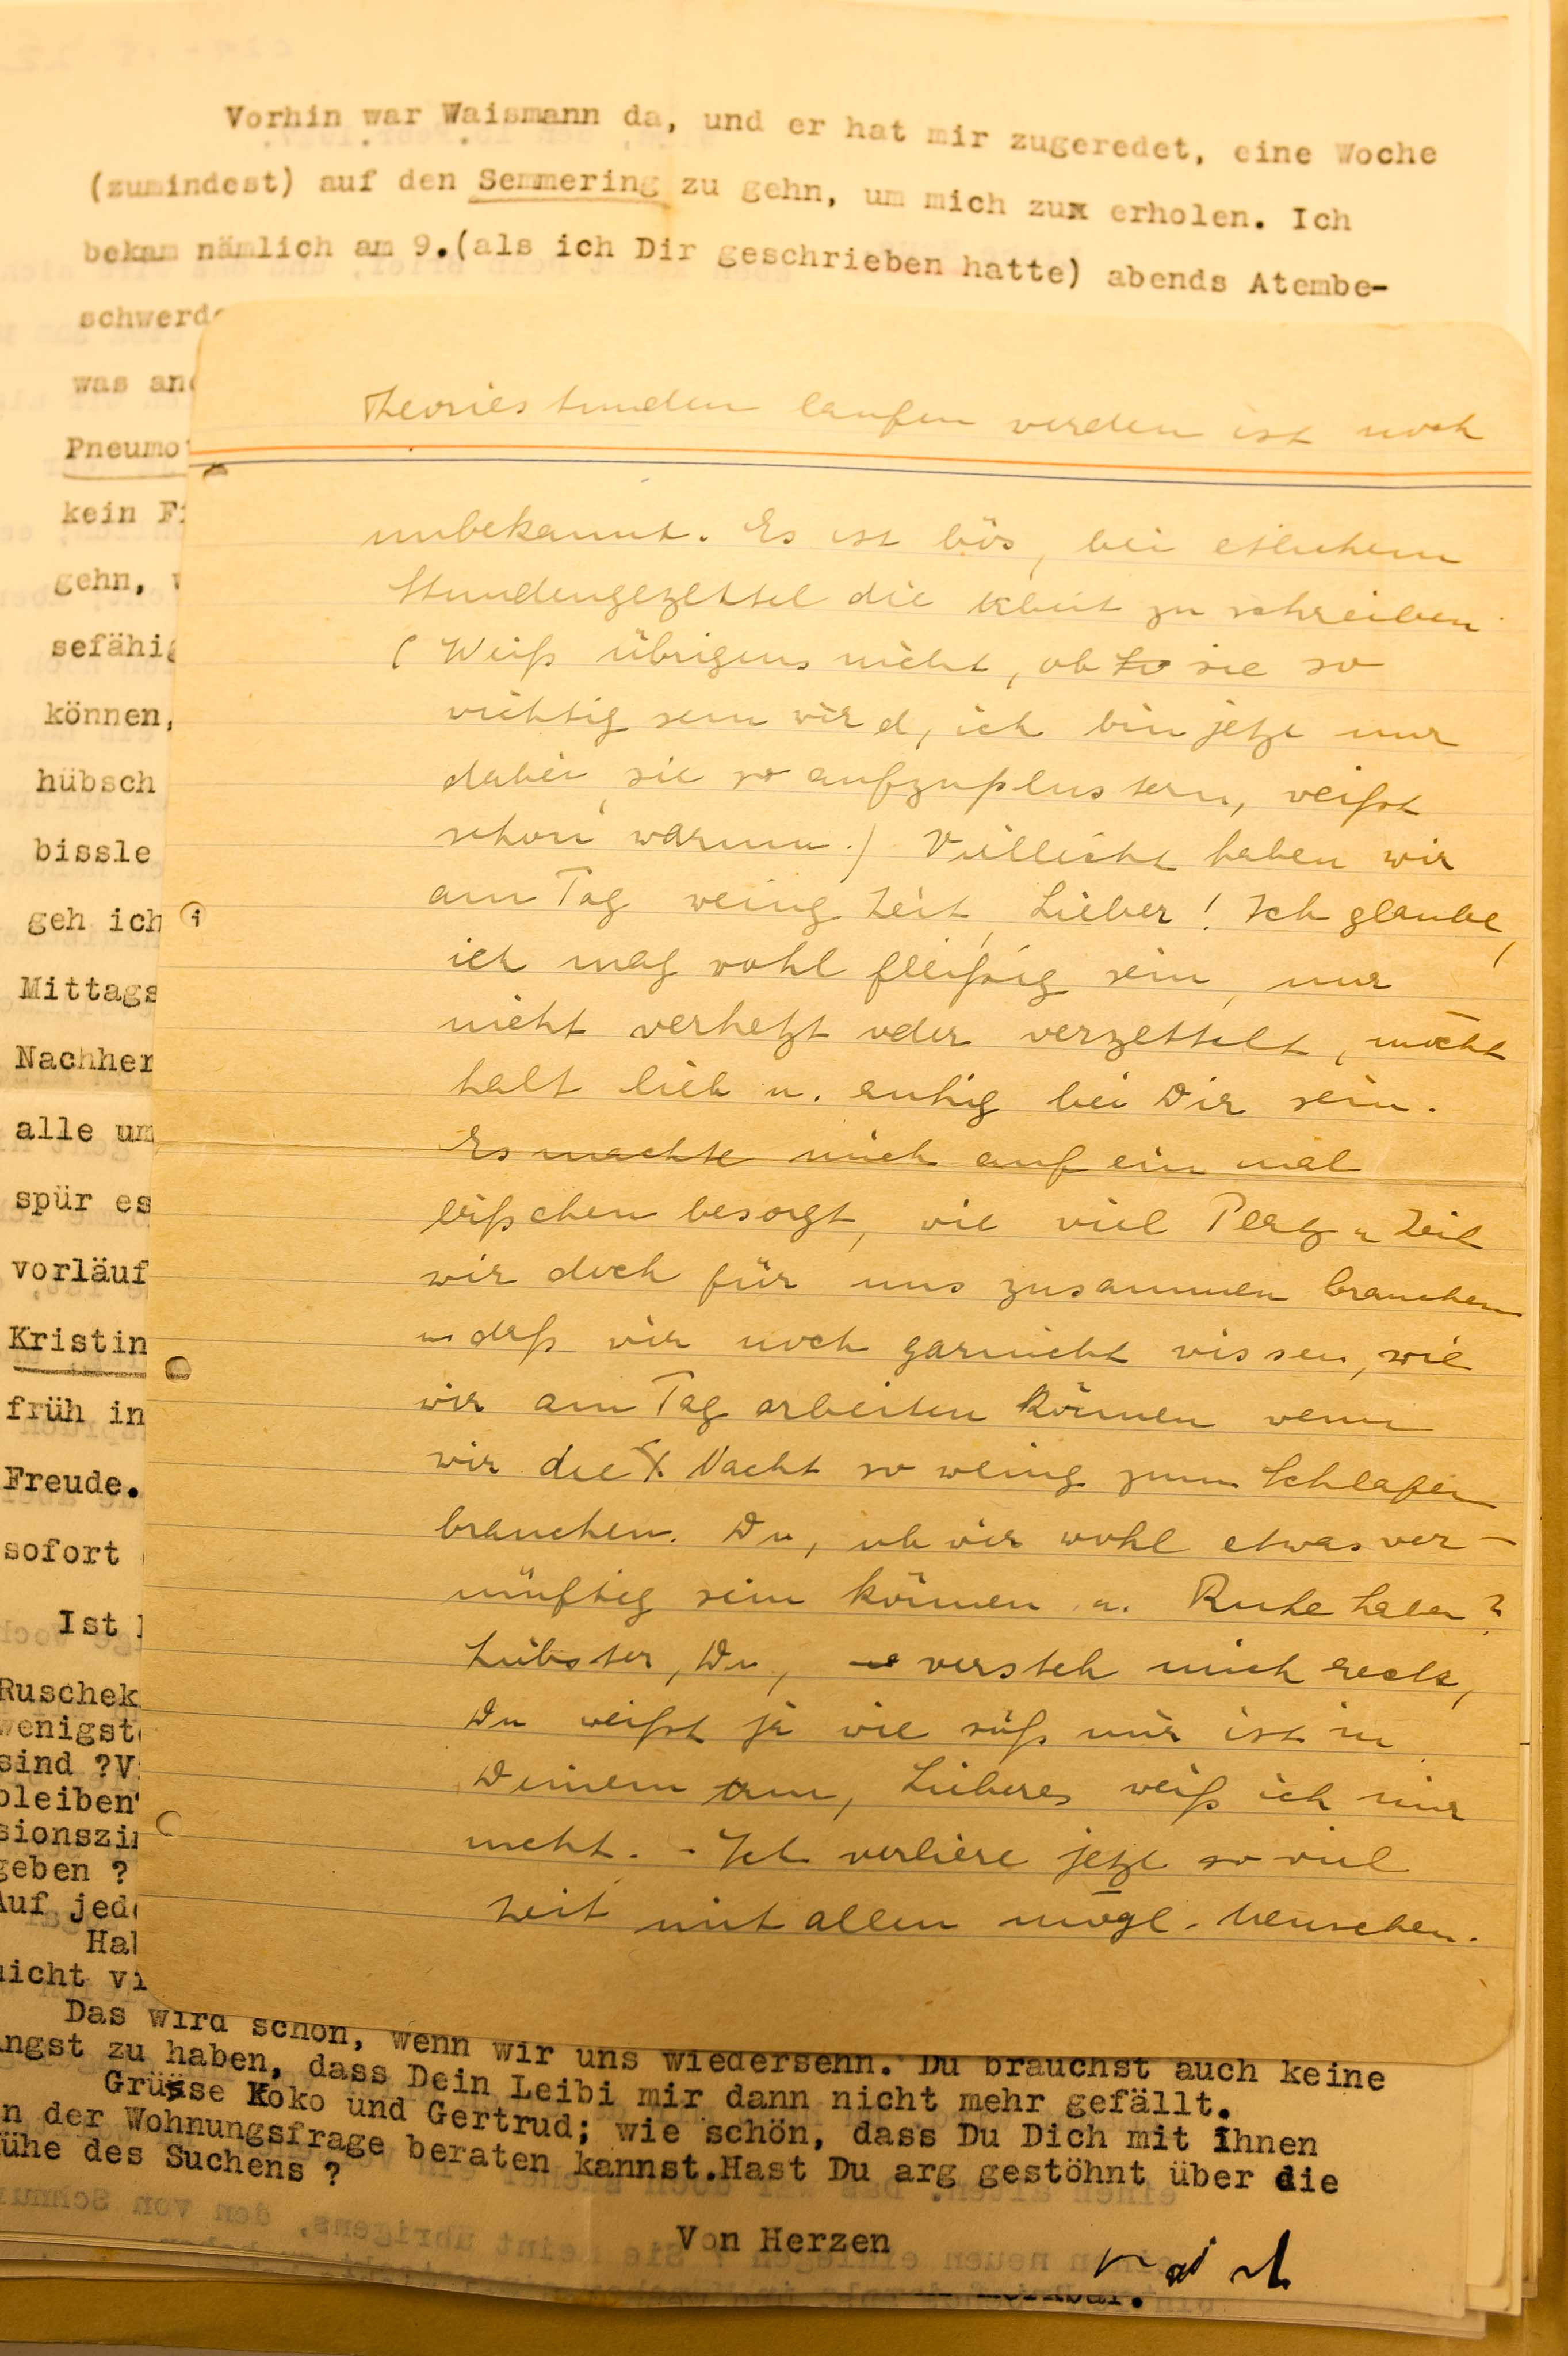 Vorhin war Waismann da, und er hat mir zugeredet, eine Woche
(zumindest) auf den Semmering zu gehn, um mich zux erholen. Ich
bekam nämlich am 9.(als ich Dir geschrieben hatte) abends Atembe-
schwerd
was an
Pneumo
kein F
gehn,
sefähig
können,
hübsch
bissle
geh ich
Mittags
Nachher
alle um
spür es
vorläuf
Kristin
früh in
Freude.
sofort
Ist
Ruschek
wenigst
sind ?V
bleiben
sionszi
geben ?
Auf jed
Hal
nicht vi
Theoriestunden laufen werden ist noch
unbekannt. Es ist bös, bei etlichem
Stundengezettel die Arbeit zu schreiben
(Weiß übrigens nicht, ob sie so
wichtig sein wird, ich bin jetzt nur
dabei, sie so aufzuplustern, weißt
schon warum.) Vielleicht haben wir
am Tag wenig Zeit, Lieber! Ich glaube,
ich mag wohl fleißig sein, nur
nicht verhetzt oder verzettelt, möcht
halt lieb u. ruhig bei Dir sein.
Es machte mich auf ein mal
bißchen besorgt, wie viel Platz u Zeit
wir doch für uns zusammen brauchen
u daß wir noch garnicht wissen, wie
wir am Tag arbeiten können wenn
wir die Nacht so wenig zum Schlafen
brauchen. Du, ob wir wohl etwas ver-
nünftig sein können u. Ruhe haben?
Liebster, Du, versteh mich recht,
Du weißt ja wie süß mir ist in
Deinem Arm, Lieberes weiß ich mir
nicht. - Ich verliere jetzt so viel
Zeit mit allen mögl. Menschen.
Das wird schön, wenn wir uns wiedersehn. Du brauchst auch keine
ngst zu haben, dass Dein Leibi mir dann nicht mehr gefällt.
Grüsse Koko und Gertrud; wie schön, dass Du Dich mit Ihnen
n der Wohnungsfrage beraten kannst.Hast Du arg gestöhnt über die
ühe des Suchens ?
Von Herzen